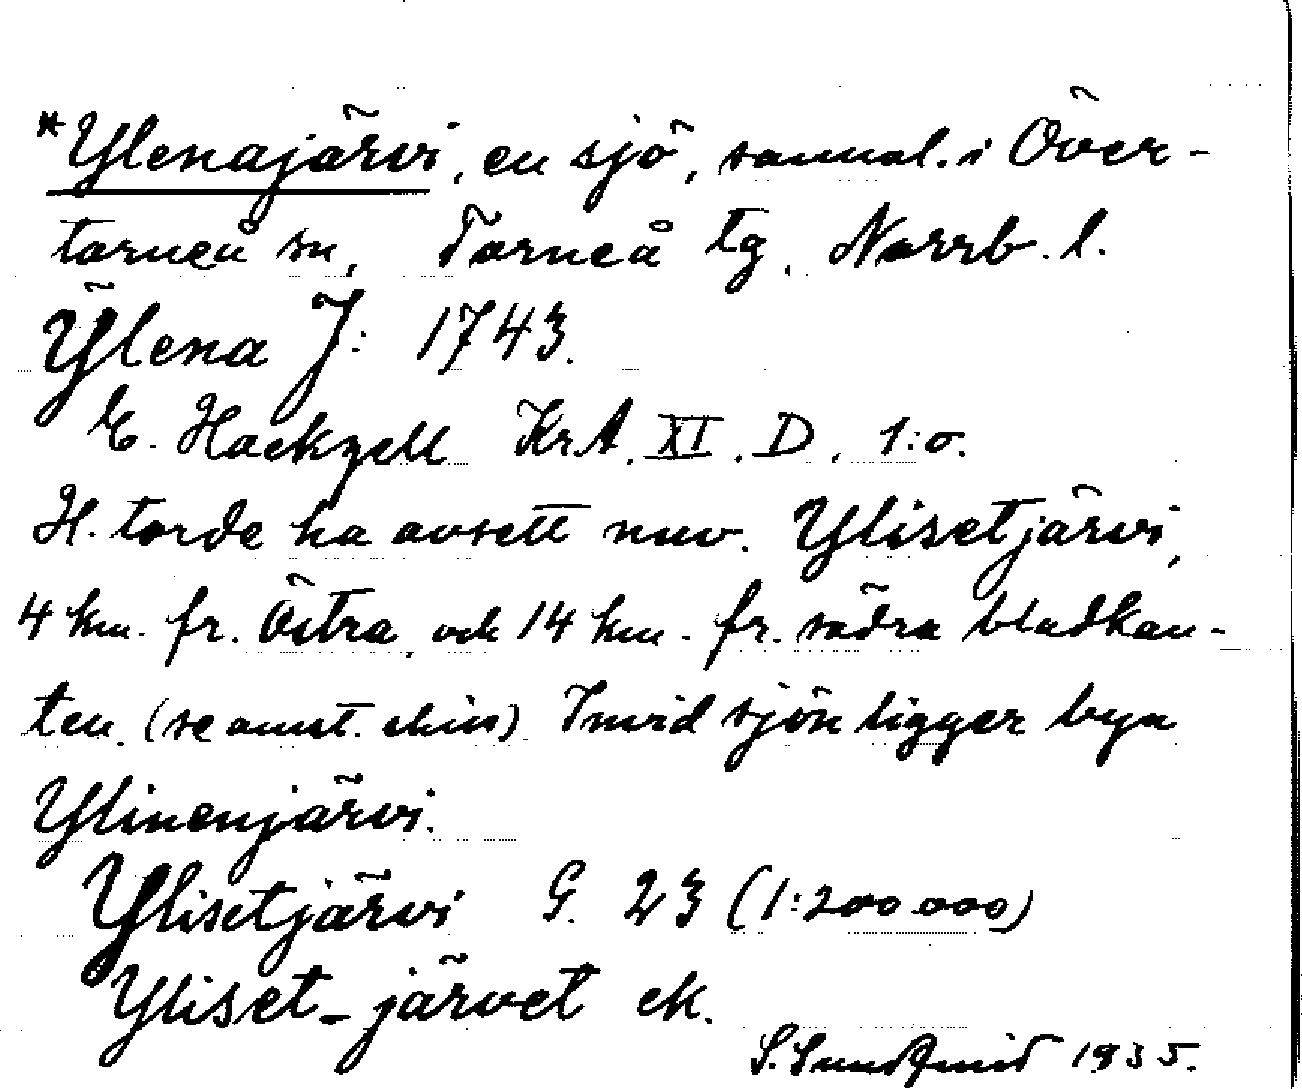 *Ylenajärvi, en sjö, sannol. i Över-
torneå sn, Torneå tg, Norrb. l.
Ÿlena J: 1743.
E. Hackzell KrA. XI. D. 1:o.
H. torde ha avsett nuv. Ylisetjärvi,
4 km. fr. Östra och 14 km. fr. södra bladkan-
ten. (se omst. skiss) Invid sjön ligger byn
Ylinenjärvi.
Ylisetjärvi G. 23 (1:200.000)
Yliset-järvet ek.
S. Sundqvist 1935.